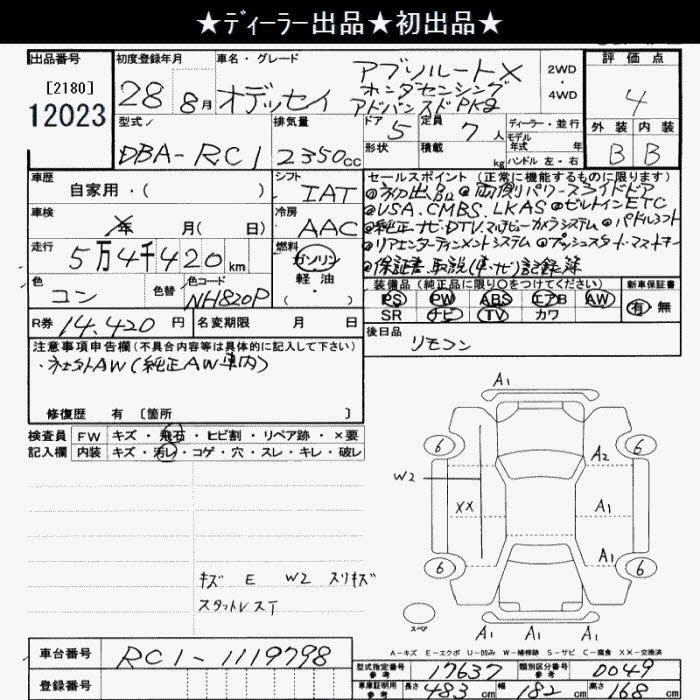 ★ディーラー出品★初出品★
出品番号
[2180]
12023
初度登録年月
28年8月
車名・グレード
オデッセイ
アブソルートX
ホンダセンシング
アドバンスドPKG
2WD
4WD
評価点
4
外装 内装
B B
型式
DBA-RC1
排気量
2350cc
ドア 5
定員 7人
形状
積載 kg
ディーラー・並行
モデル年式 年
ハンドル 左・右
車歴
自家用・( )
シフト
IAT
車検
年 月( 日)
冷房
AAC
走行
5万4千420km
燃料
ガソリン
軽油
・
( )
色
コン
色替
色コード
NH820P
R券 14,420円
名変期限 月 日
セールスポイント (正常に機能するものに限ります)
◎初出品 ◎両側パワースライドドア
◎VSA.CMBS.LKAS ◎ビルトインETC
◎純正ナビ・DTV.マルチビューカメラシステム ◎パドルシフト
◎リアエンターテイメントシステム ◎プッシュスタート・スマートキー
◎保証書.取説(車・ナビ)記録簿
装備品(純正品に限り○をつけてください)
PS PW ABS エアB AW
SR ナビ TV カワ
新車保証書
有・無
後日品
リモコン
注意事項申告欄(不具合内容等は具体的に記入して下さい)
・社外AW(純正AW車内)
修復歴 有 〔箇所 〕
検査員 FW キズ・飛石・ヒビ割・リペア跡・×要
記入欄 内装 キズ・汚レ・コゲ・穴・スレ・キレ・破レ
キズ E W2 スリキズ
スタットレス丁
A1
6 6
A2
W2
XX A1
A1
6 6
スペア
A1 A1 A1
A-キズ E-エクボ U-凹み W-補修跡 S-サビ C-腐食 XX-交換済
車台番号 RC1-1119798
登録番号
型式指定番号 参考 17637
類別区分番号 参考 0049
車庫証明用 参考 長さ 483cm 幅 182cm 高さ 168cm